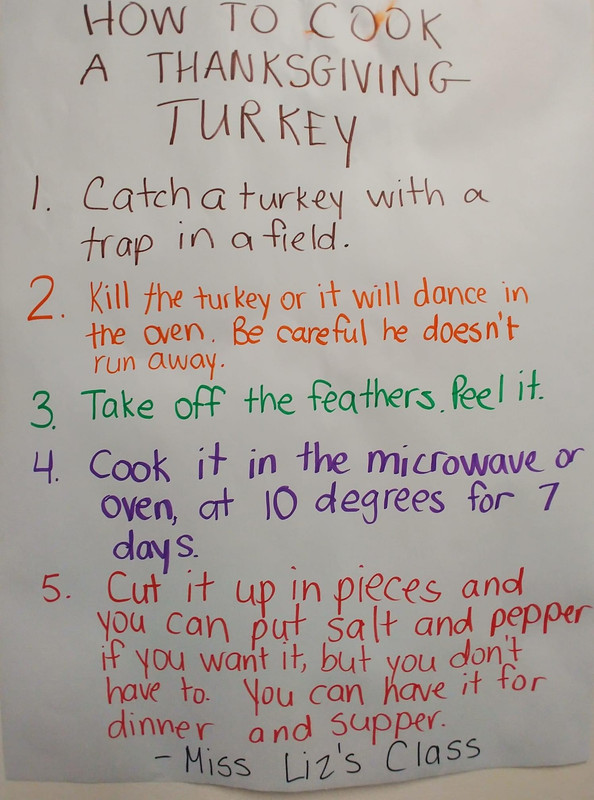 HOW TO COOK
A THANKSGIVING
TURKEY
1. Catch a turkey with a
trap in a field.
2. Kill the turkey or it will dance in
the oven. Be careful he doesn't
run away.
3. Take off the feathers. Peel it.
4. Cook it in the microwave or
oven, at 10 degrees for 7
days.
5. Cut it up in pieces and
you can put salt and pepper
if you want it, but you don't
have to. You can have it for
dinner and supper.
- Miss Liz's Class